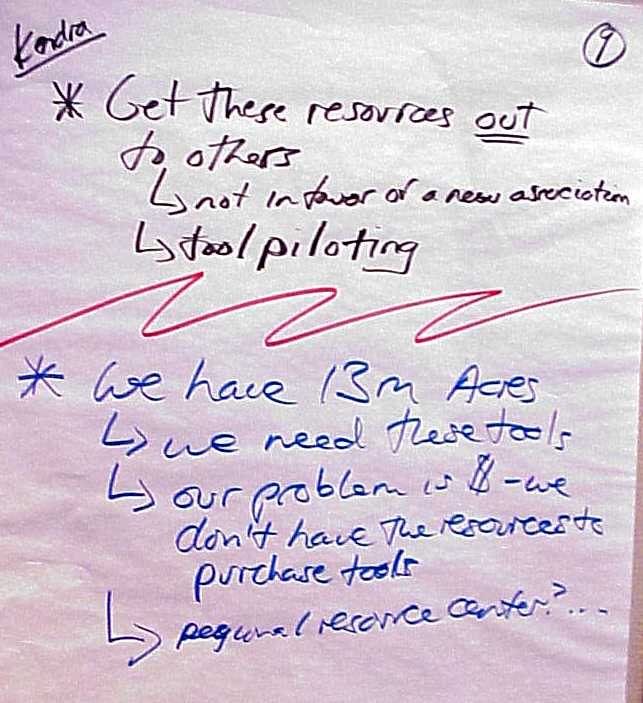 Kendra
9
* Get these resources out
to others
↳ not in favor of a new association
↳ tool piloting
* We have 13m Acres
↳ we need these tools
↳ our problem is $ - we
don't have the resources to
purchase tools
↳ regional resource center?...